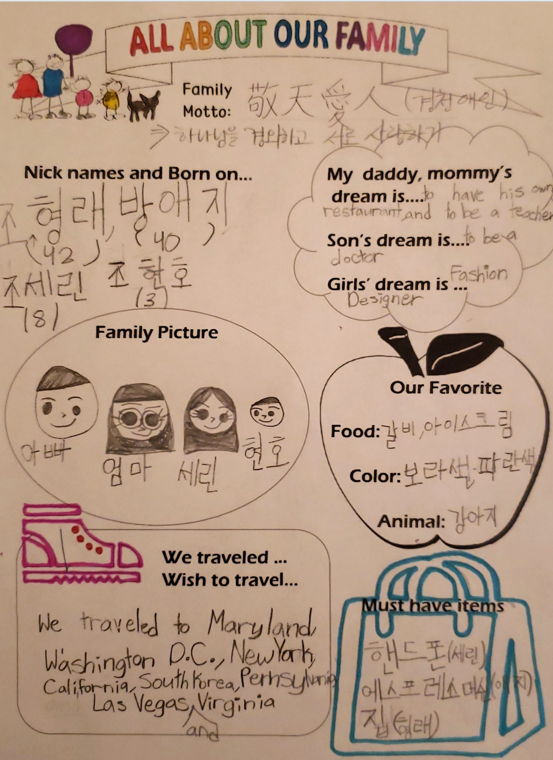 ALL ABOUT OUR FAMILY
Family
Motto: 敬天愛人 (경천애인)
⇒ 하나님을 경외하고 서로 사랑하자
Nick names and Born on...
조형래, 방애지
(42) (40)
조세린 조현호
(8) (3)
My daddy, mommy's
dream is....to have his own
restaurant, and to be a teacher
Son's dream is....to be a
doctor
Girls' dream is ... Fashion
Designer
Family Picture
아빠 엄마 세린 현호
Our Favorite
Food: 갈비, 아이스크림
Color: 보라색, 파란색
Animal: 강아지
We traveled ...
Wish to travel...
We traveled to Maryland,
Washington D.C., New York,
California, South Korea, Pennsylvania,
Las Vegas, Virginia
and
Must have items
핸드폰(세린)
에스프레소 머신(애지)
집(형래)